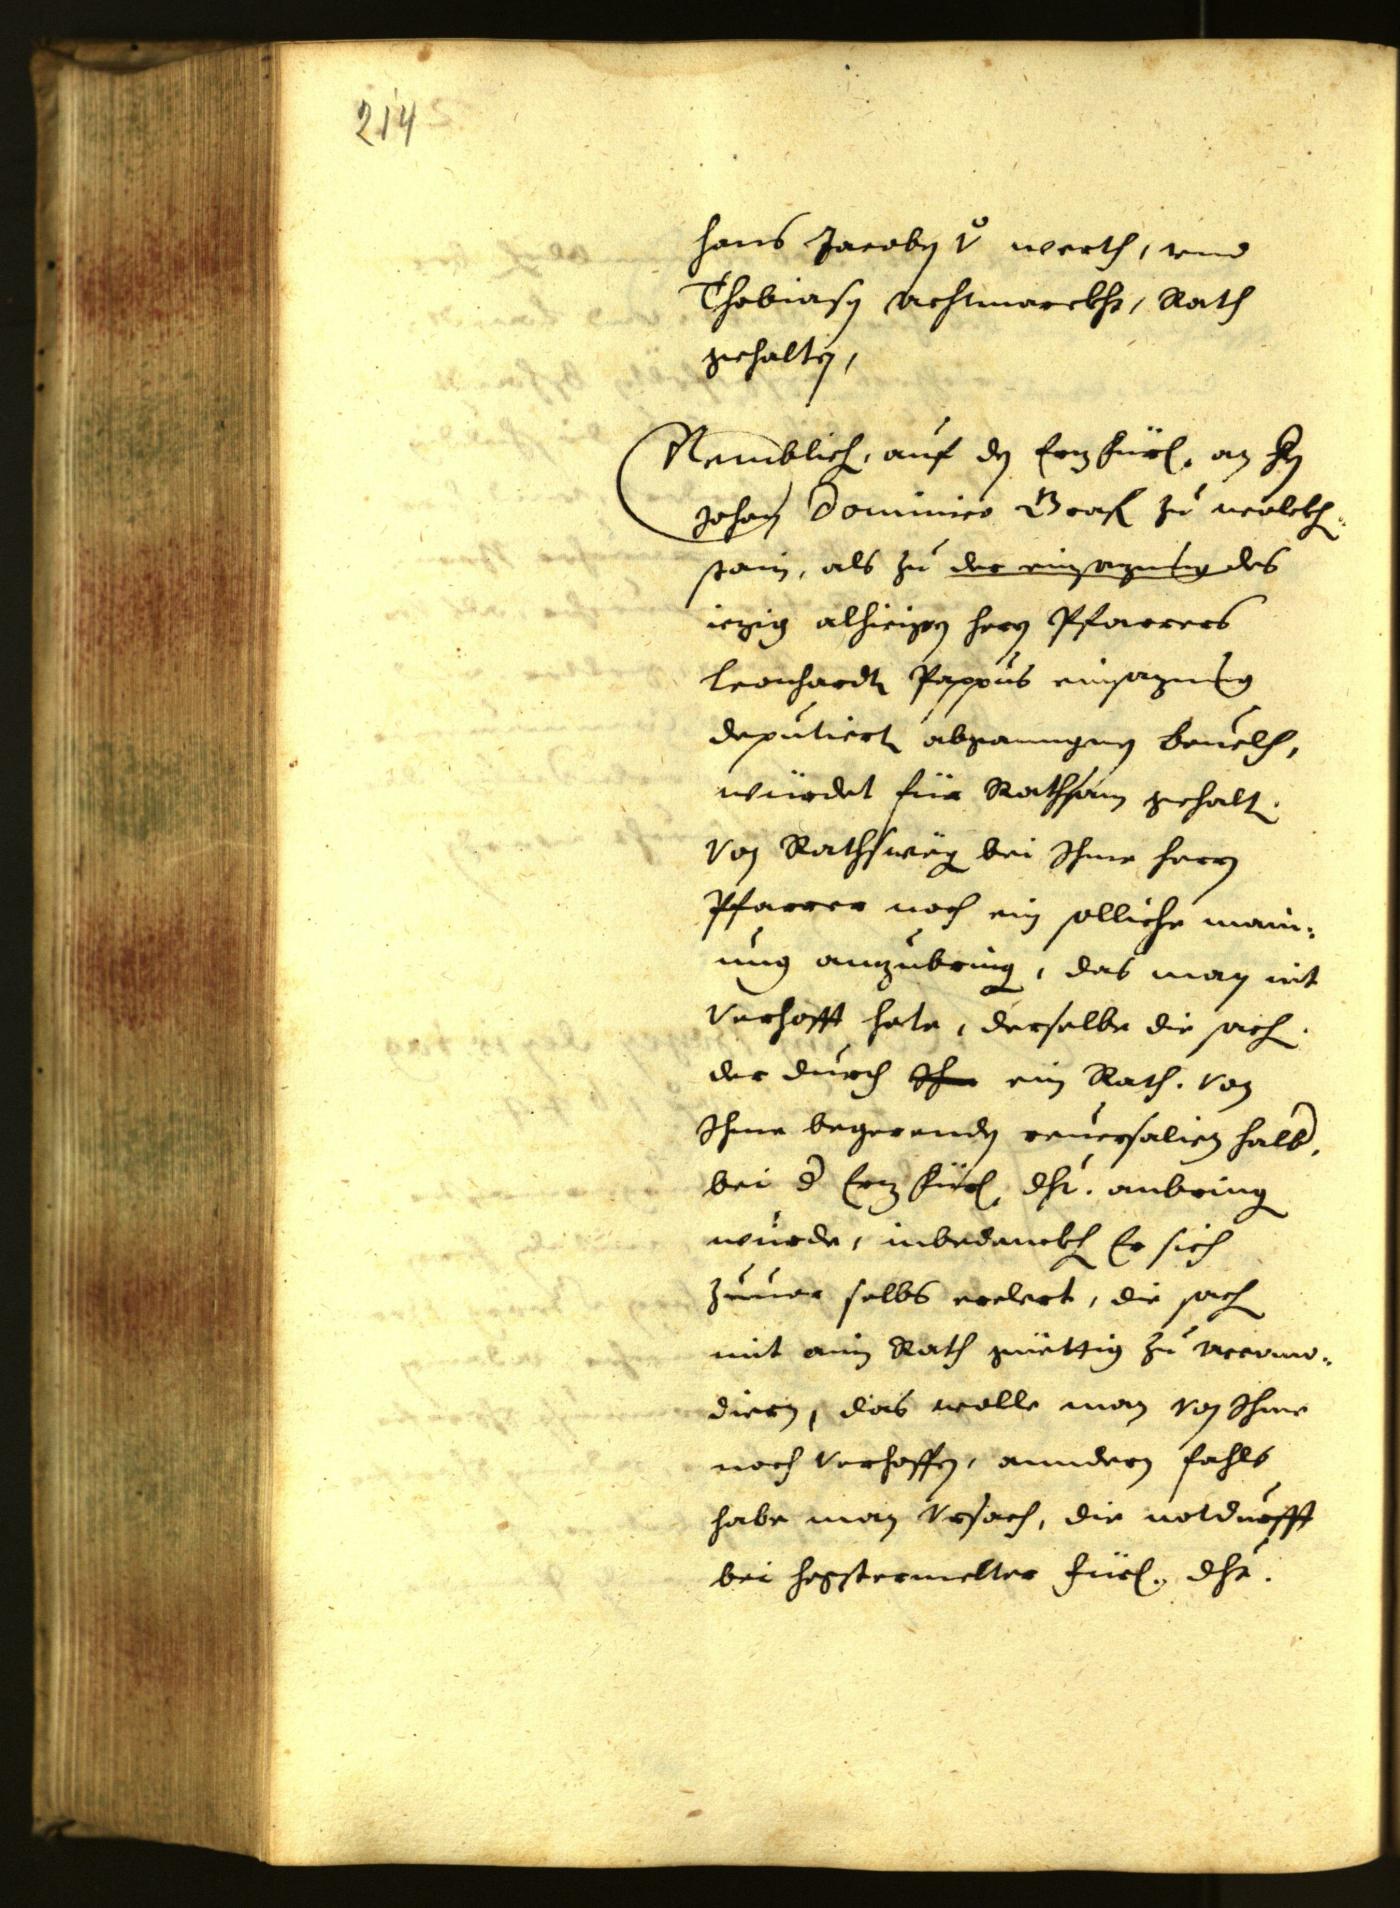 214
Hans Jacoben v: werth, vnd
Thobiasen Achtmarckht, Rath
gehalten,
Nemblich, auf den Erzfürl. an Hn
Johan Dominico Graf zu wolckh-
stain, als zu der einsazung des
iezig alhiesigen herrn Pfarrers
Leonhardt Pappus einsazung
deputiert abgangnen beuelch,
würdet für Rathsam gehalt.
Von Rathsweg bei Ihme herrn
Pfarrer noch ein solliche main-
ung anzubring, das man nit
verhofft hete, derselbe die sach.
der durch Ihn ein Rath. von
Ihme begerenden reuersalien halb.
bei d Erzfürl. dht. anbring
wurde, inbedenckh Er sich
zuuor selbs erclert, die sach
mit ain Rath güettig zu accomo-
diern, das wolle man von Ihme
noch verhoffen, anndern fahls
habe man Vrsach, die notdurfft
bei hegstermelter fürl. dht.